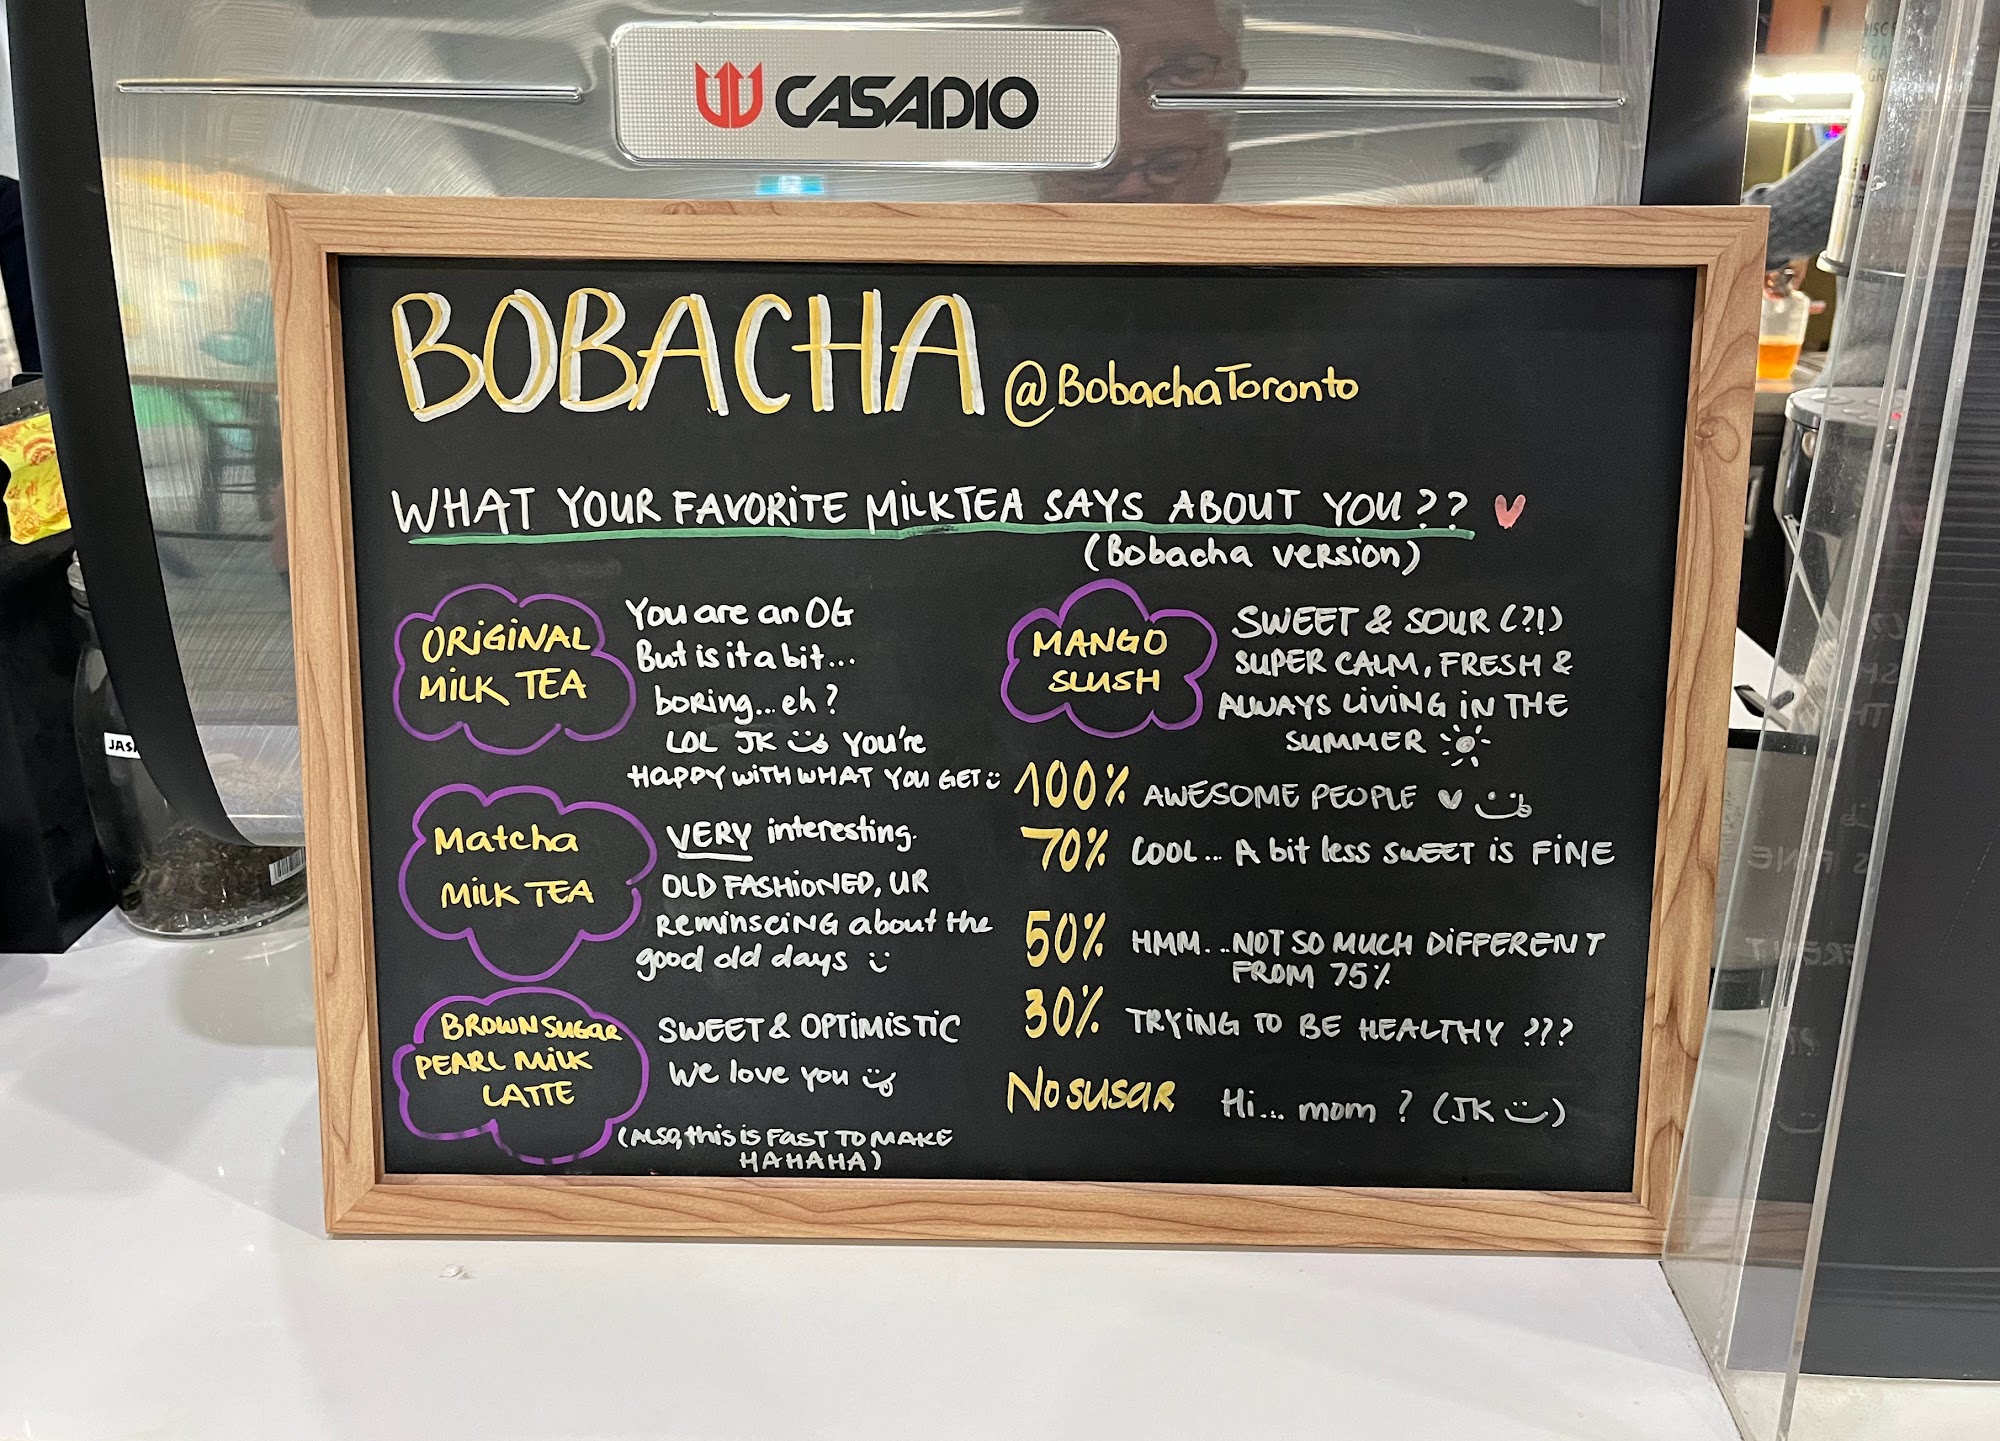 CASADIO
BOBACHA @BobachaToronto
WHAT YOUR FAVORITE MILKTEA SAYS ABOUT YOU??
(Bobacha version)
ORIGINAL
MILK TEA
You are an OG
But is it a bit...
boring...eh?
LOL JK You're
HAPPY WITH WHAT YOU GET
Matcha
MILK TEA
VERY interesting.
OLD FASHIONED, UR
Reminscing about the
good old days
BROWN SUGAR
PEARL MILK
LATTE
SWEET & OPTIMISTIC
We love you
(ALSO, this is FAST TO MAKE
HAHAHA)
MANGO
SLUSH
SWEET & SOUR (?!)
SUPER CALM, FRESH &
ALWAYS LIVING IN THE
SUMMER
100% AWESOME PEOPLE
70% COOL... A bit less SWEET is FINE
50% HMM...NOT SO MUCH DIFFERENT
FROM 75%
30% TRYING TO BE HEALTHY ???
NO SUGAR Hi... mom? (JK)
JAS